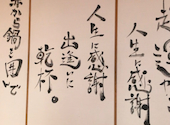 人生に感謝
人生に感謝
出逢いに
乾杯。
から鍋を囲んで